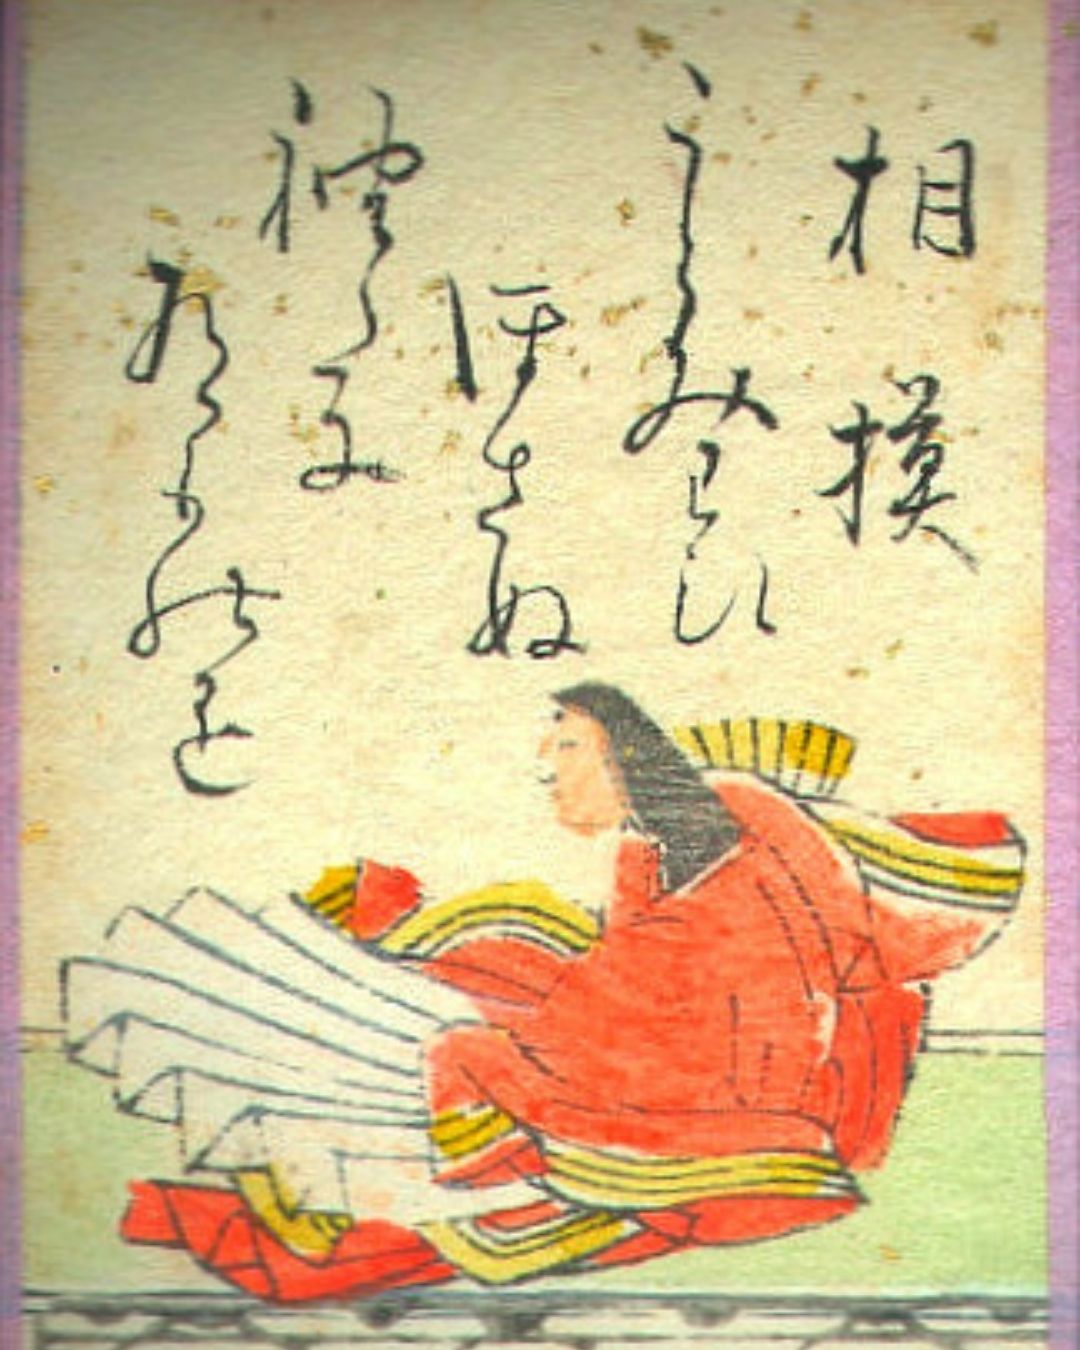 相模
うらみわひ
ほさぬ
袖たに
ある物を